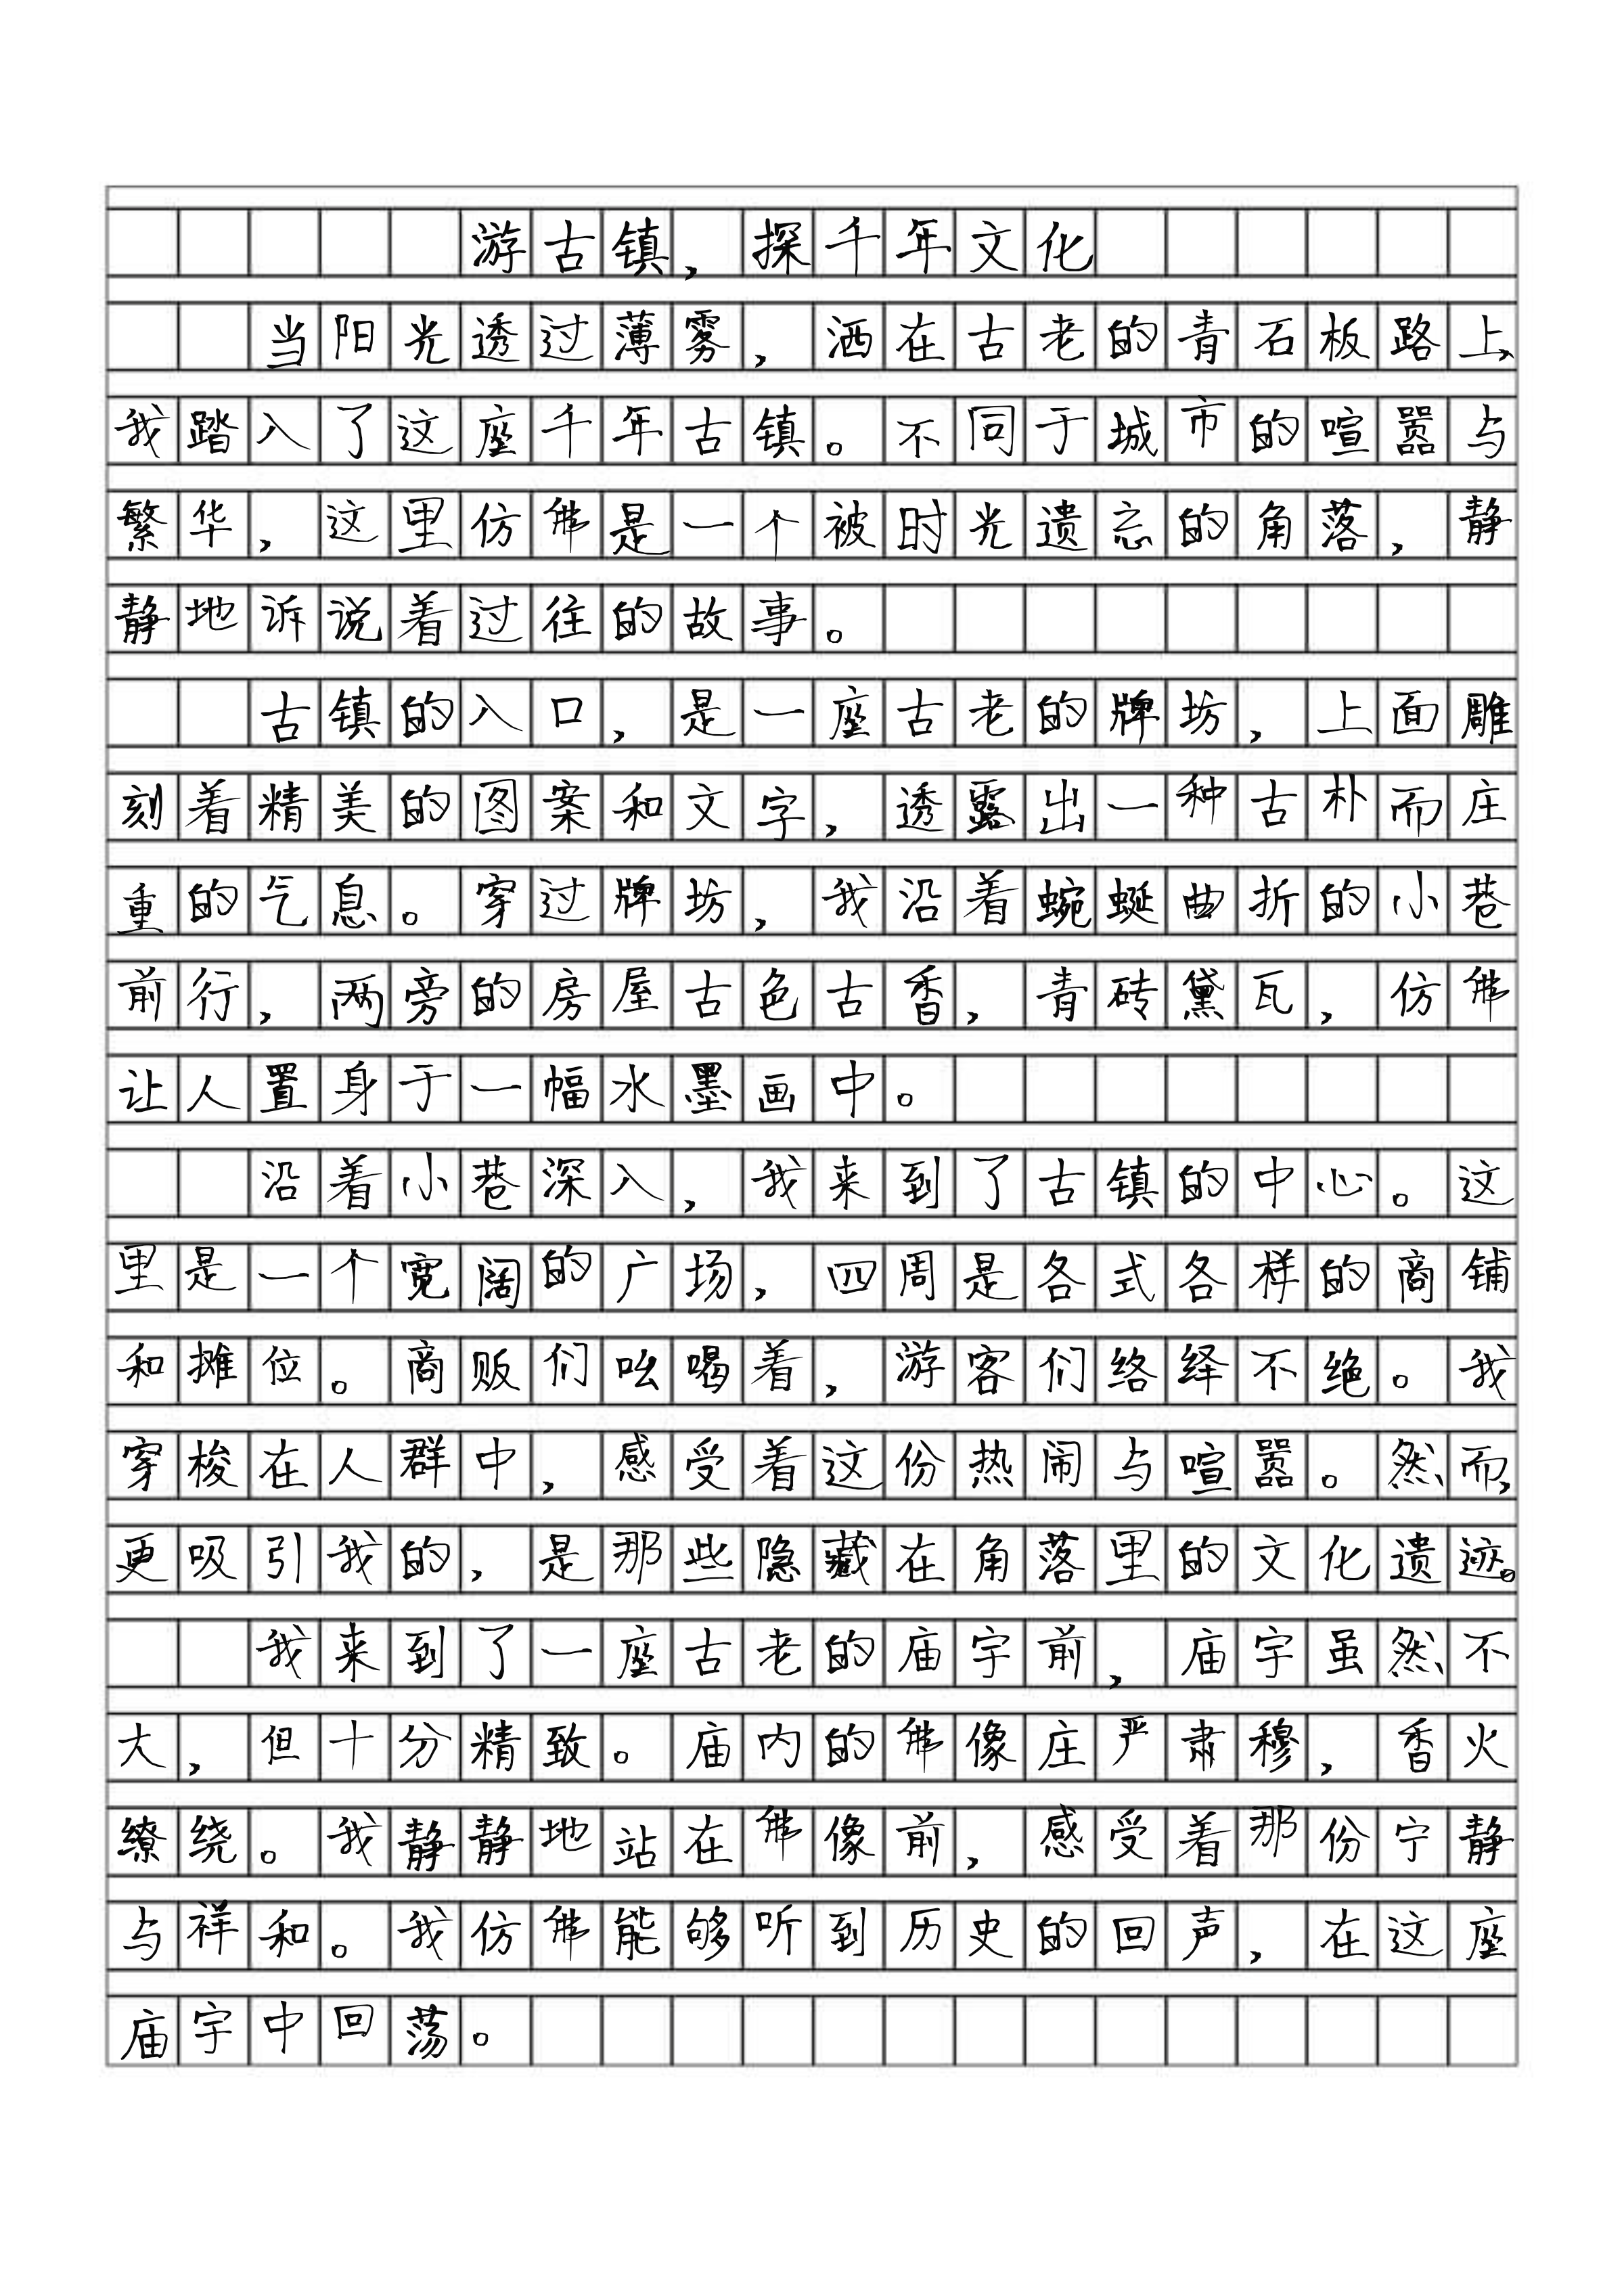 游古镇，探千年文化
当阳光透过薄雾，洒在古老的青石板路上，
我踏入了这座千年古镇。不同于城市的喧嚣与
繁华，这里仿佛是一个被时光遗忘的角落，静
静地诉说着过往的故事。
古镇的入口，是一座古老的牌坊，上面雕
刻着精美的图案和文字，透露出一种古朴而庄
重的气息。穿过牌坊，我沿着蜿蜒曲折的小巷
前行，两旁的房屋古色古香，青砖黛瓦，仿佛
让人置身于一幅水墨画中。
沿着小巷深入，我来到了古镇的中心。这
里是一个宽阔的广场，四周是各式各样的商铺
和摊位。商贩们吆喝着，游客们络绎不绝。我
穿梭在人群中，感受着这份热闹与喧嚣。然而，
更吸引我的，是那些隐藏在角落里的文化遗迹。
我来到了一座古老的庙宇前，庙宇虽然不
大，但十分精致。庙内的佛像庄严肃穆，香火
缭绕。我静静地站在佛像前，感受着那份宁静
与祥和。我仿佛能够听到历史的回声，在这座
庙宇中回荡。